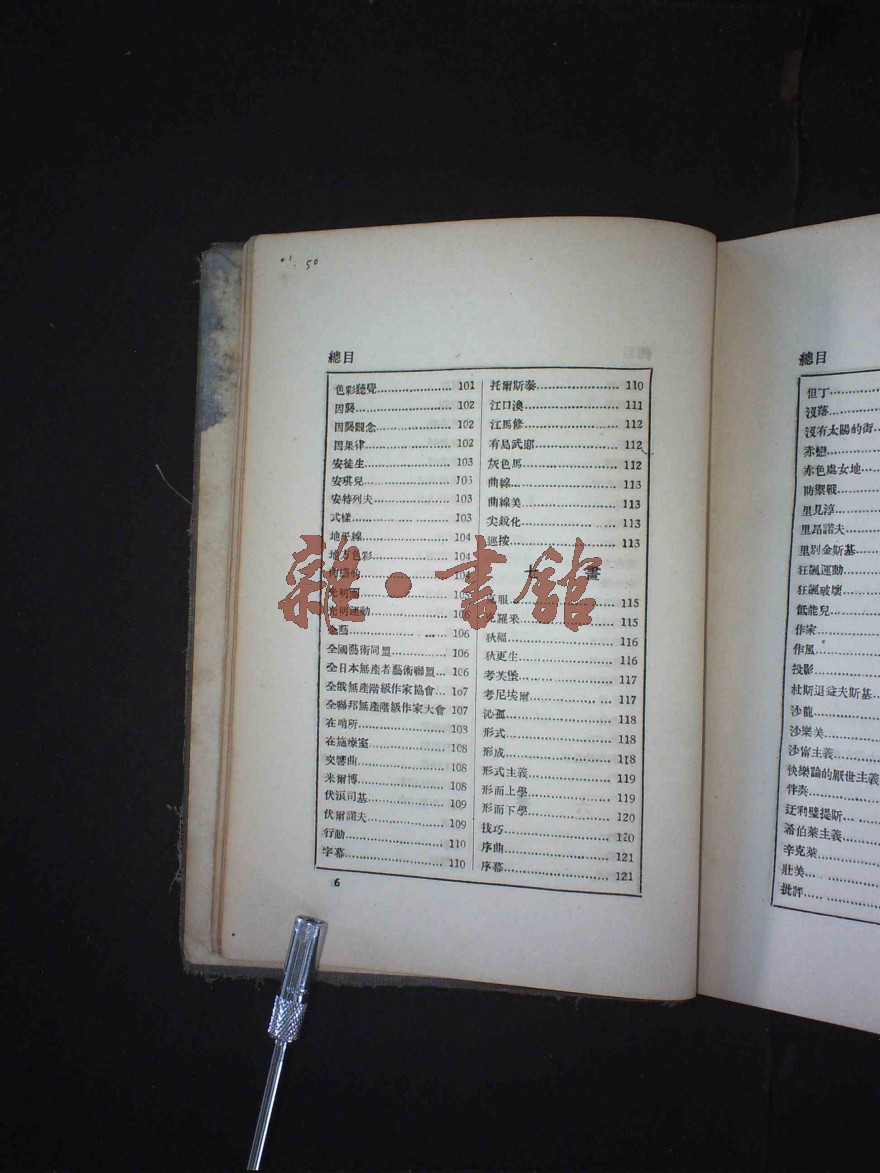 50
總目
色彩聽覺 101
因襲 102
因襲觀念 102
因果律 102
安徒生 103
安琪兒 103
安特列夫 103
式樣 103
地平線 104
地方色彩 104
104
光明面
光明運動 106
全藝 106
全國藝術同盟 106
全日本無產者藝術聯盟 106
全俄無產階級作家協會 107
全聯邦無產階級作家大會 107
在哨所 108
在施療室 108
交響曲 108
米爾博 108
伏浪司基 109
伏爾諾夫 109
行動 110
字幕 110
托爾斯泰 110
江口渙 111
江馬修 112
有島武郎 112
灰色馬 112
曲線 113
曲線美 113
尖銳化 113
巡按 113
畫
115
克羅采 115
狄福 116
狄更生 116
考茨堡 117
考尼埃爾 117
沁孤 118
形式 118
形成 118
形式主義 119
形而上學 119
形而下學 120
技巧 120
序曲 121
序幕 121
6
雜·書館
總目
但丁
沒落
沒有太陽的街
赤戀
赤色處女地
防禦戰
里見淳
里昂諾夫
里別金斯基
狂飆運動
狂飆破壞
低能兒
作家
作風
投影
杜斯退益夫斯基
沙龍
沙樂美
沙甯主義
快樂論的厭世主義
伴奏
迂利璧提斯
希伯萊主義
辛克萊
壯美
批評